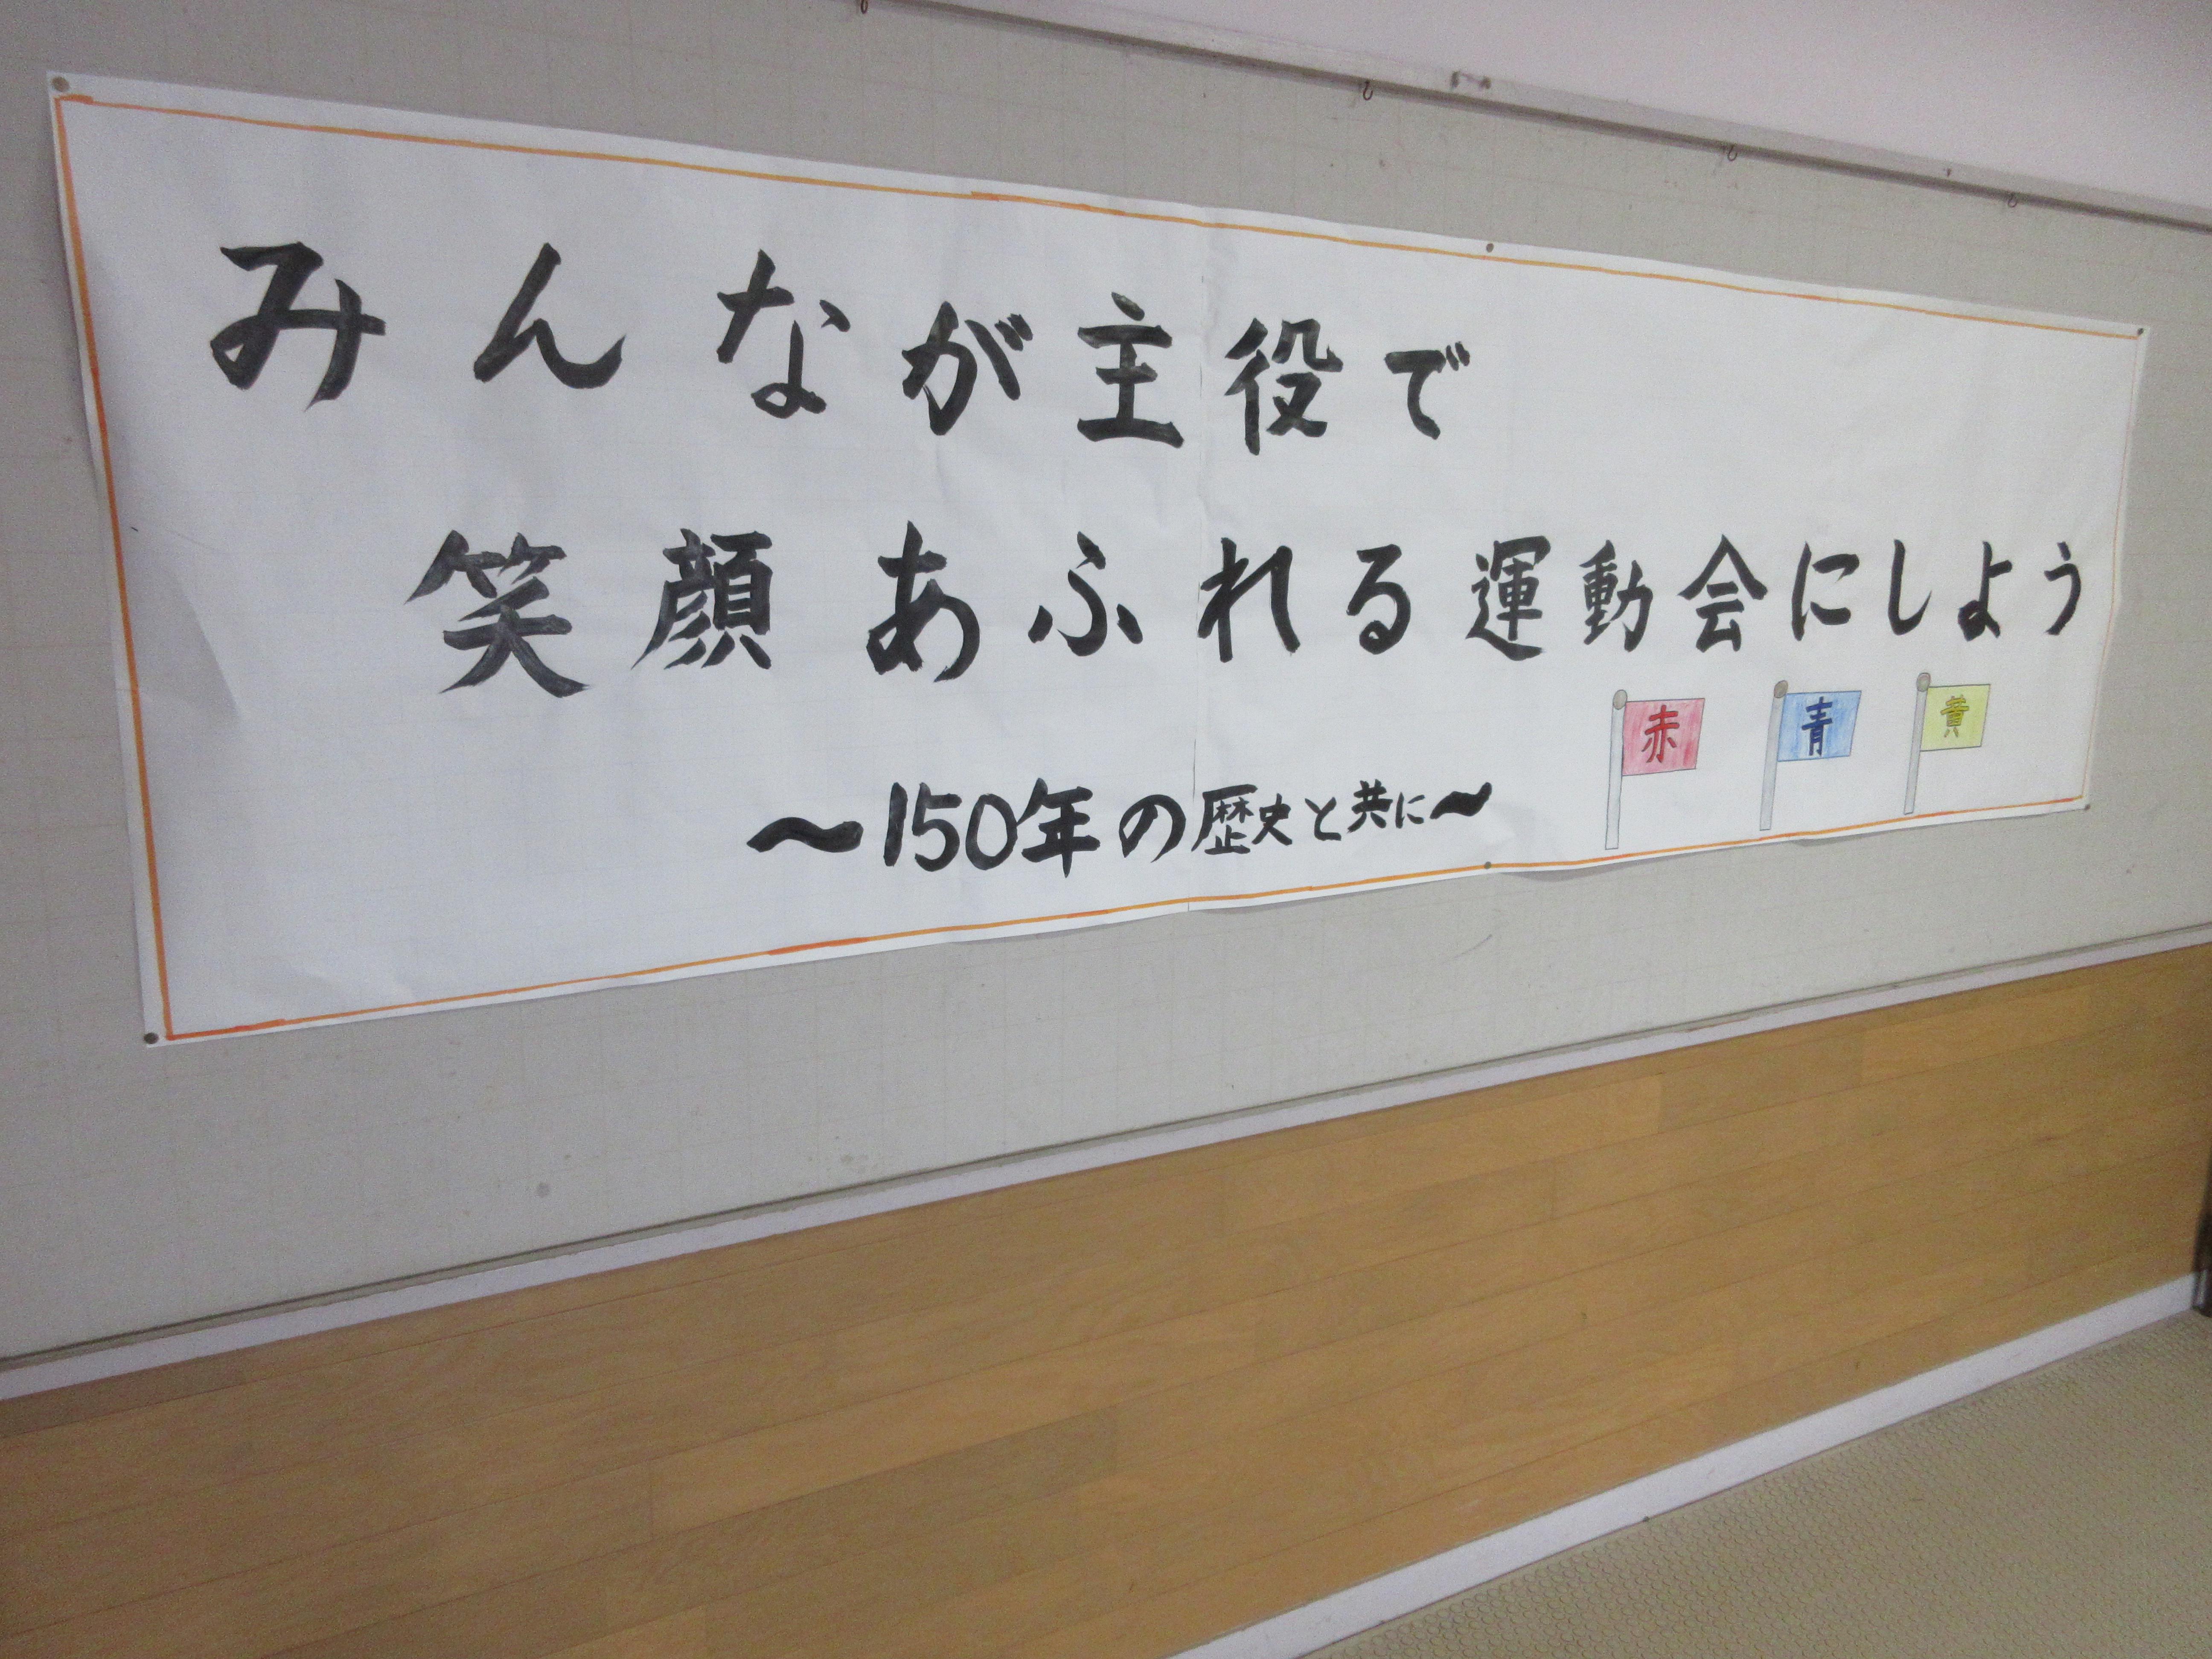 みんなが主役で
笑顔あふれる運動会にしよう
赤 青 黄
～150年の歴史と共に～